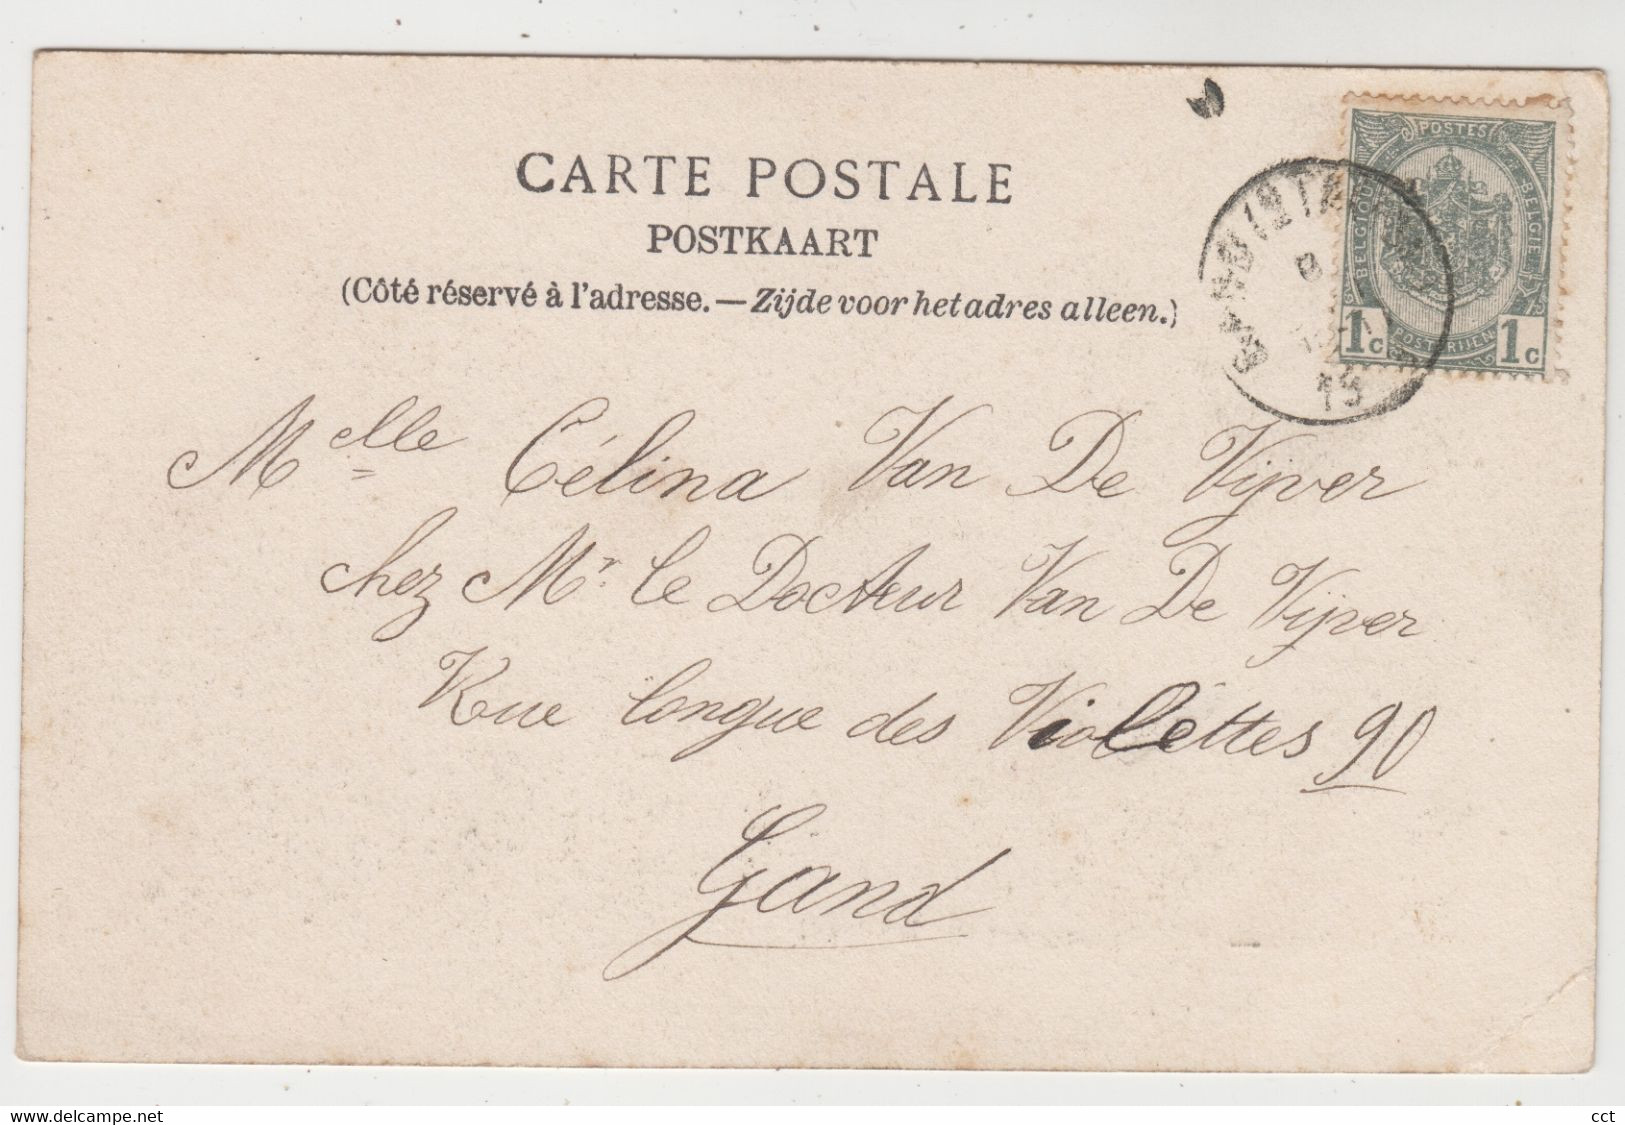 CARTE POSTALE
POSTKAART
(Côté réservé à l'adresse. — Zijde voor het adres alleen.)
POSTES
BELGIQUE
BELGIË
POSTERIJEN
1c 1c
19
Melle Célina Van De Vijver
chez Mr. le Docteur Van De Vijver
Rue longue des Violettes 90
Gand
www.delcampe.net
cct